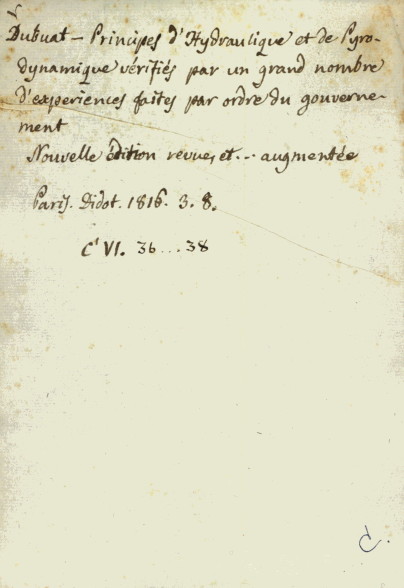 Dubuat - Principes d'Hydraulique et de Pyro-
dynamique vérifiés par un grand nombre
d'experiences faites par ordre du gouverne-
ment
Nouvelle édition revue, et... augmentée
Paris. Didot. 1816. 3. 8.
C' VI. 36...38
C.